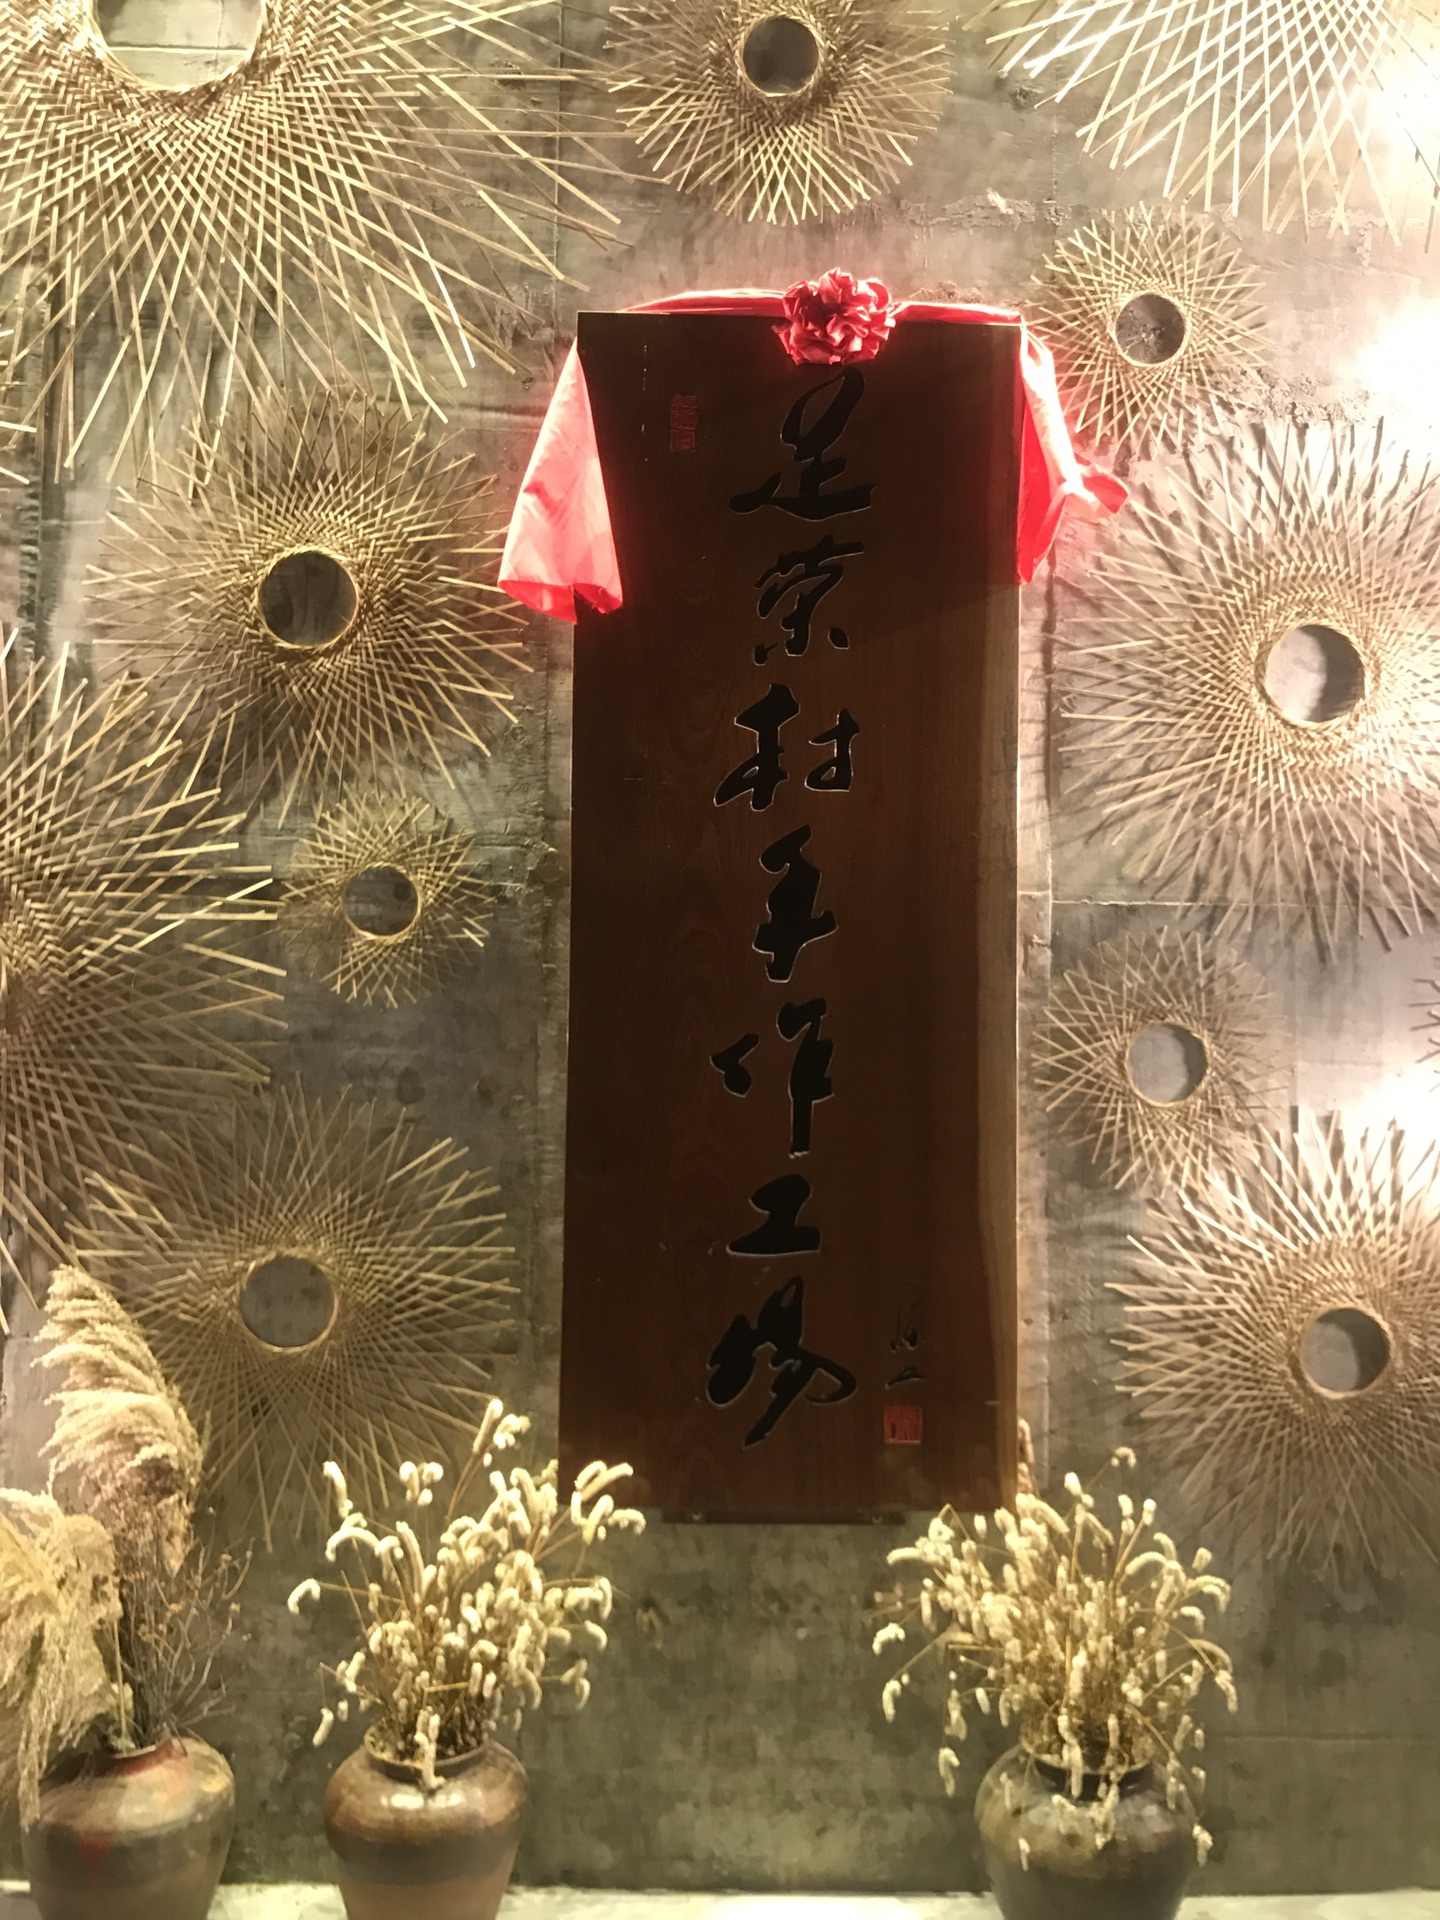 足荣村手作工场